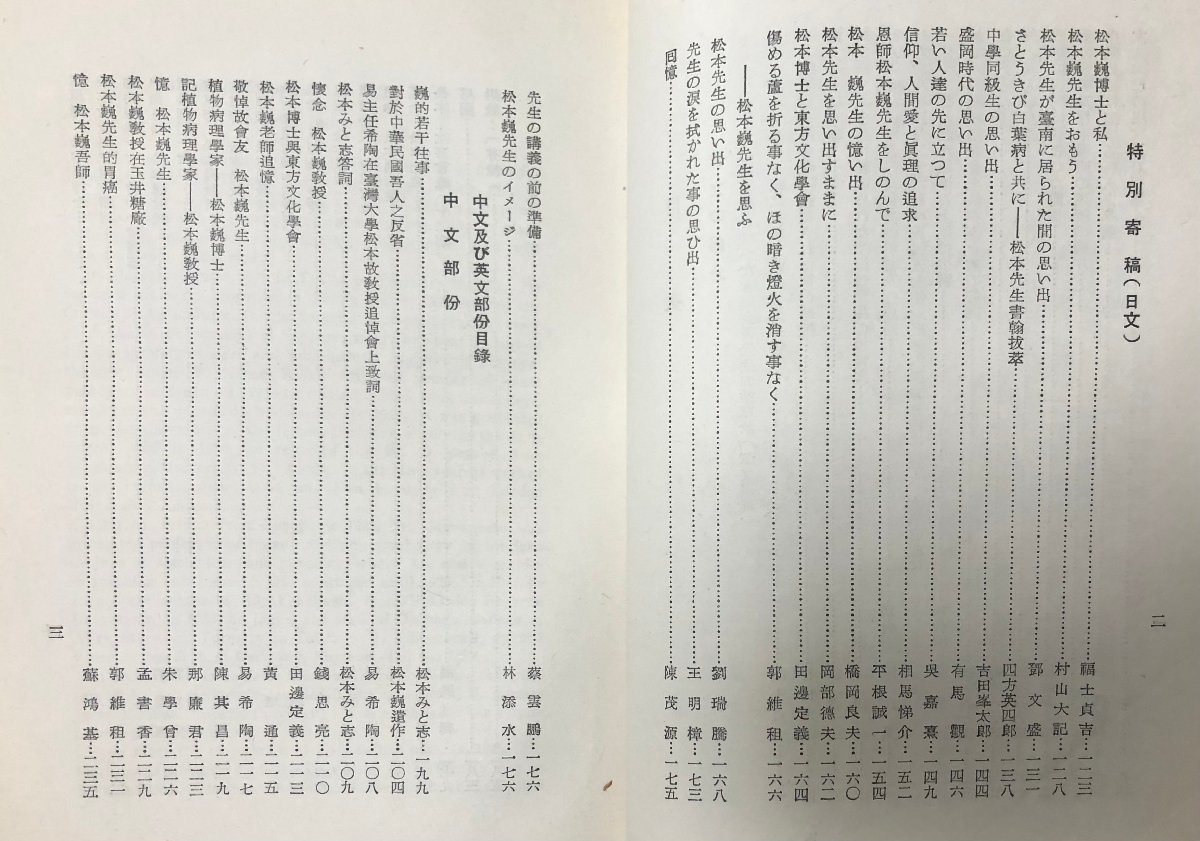 特別寄稿（日文）
松本巍博士と私……福士貞吉…一二三
松本巍先生をおもう……村山大記…一二八
松本先生が臺南に居られた間の思い出……鄧文盛…一三一
さとうきび白葉病と共に――松本先生書翰拔萃……四方英四郎…一三八
中學同級生の思い出……吉田峯太郎…一四四
盛岡時代の思い出……有馬觀…一四六
若い人達の先に立つて……吳嘉熹…一四九
信仰、人間愛と眞理の追求……相馬悌介…一五二
恩師松本巍先生をしのんで……平根誠一…一五四
松本　巍先生の憶い出……橋岡良夫…一六〇
松本先生を思い出すままに……岡部德夫…一六二
松本博士と東方文化學會……田邊定義…一六四
傷める蘆を折る事なく、ほの暗き燈火を消す事なく……郭維租…一六六
――松本巍先生を思ふ
松本先生の思い出……劉瑞騰…一六八
先生の涙を拭かれた事の思ひ出……王明樟…一七三
囘憶……陳茂源…一七五
二
先生の講義の前の準備……蔡雲鵬…一七六
松本巍先生のイメージ……林添水…一七六
中文及び英文部份目錄
中文部份
巍的若干往事……松本みと志…一九九
對於中華民國吾人之反省……松本巍遺作…二〇四
易主任希陶在臺灣大學松本故敎授追悼會上致詞……易希陶…二〇八
松本みと志答詞……松本みと志…二〇九
懷念　松本巍敎授……錢思亮…二一〇
松本博士與東方文化學會……田邊定義…二一三
松本巍老師追憶……黃通…二一五
敬悼故會友　松本巍先生……易希陶…二一七
植物病理學家――松本巍博士……陳其昌…二一九
記植物病理學家――松本巍敎授……那廉君…二二三
憶　松本巍先生……朱學曾…二二六
松本巍敎授在玉井糖廠……孟書香…二二九
松本巍先生的胃癌……郭維租…二三二
憶　松本巍吾師……蘇鴻基…二三五
三